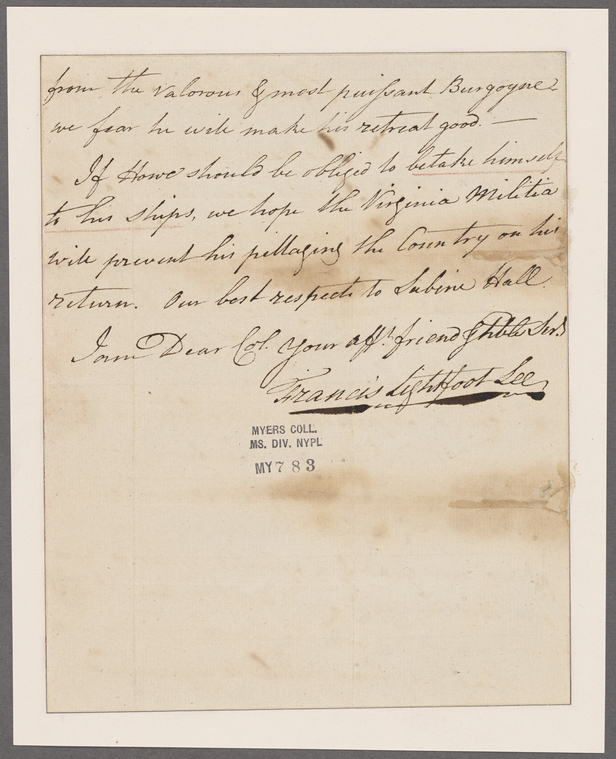 from the valorous & most puissant Burgoyne
we fear he will make his retreat good. —
If Howe should be obliged to betake himself
to his ships, we hope the Virginia Militia
will prevent his pillaging the Country on his
return. Our best respects to Sabine Hall.
I am Dear Col. your afft. friend & hble Servt
Francis Lightfoot Lee
MYERS COLL.
MS. DIV. NYPL
MY 783